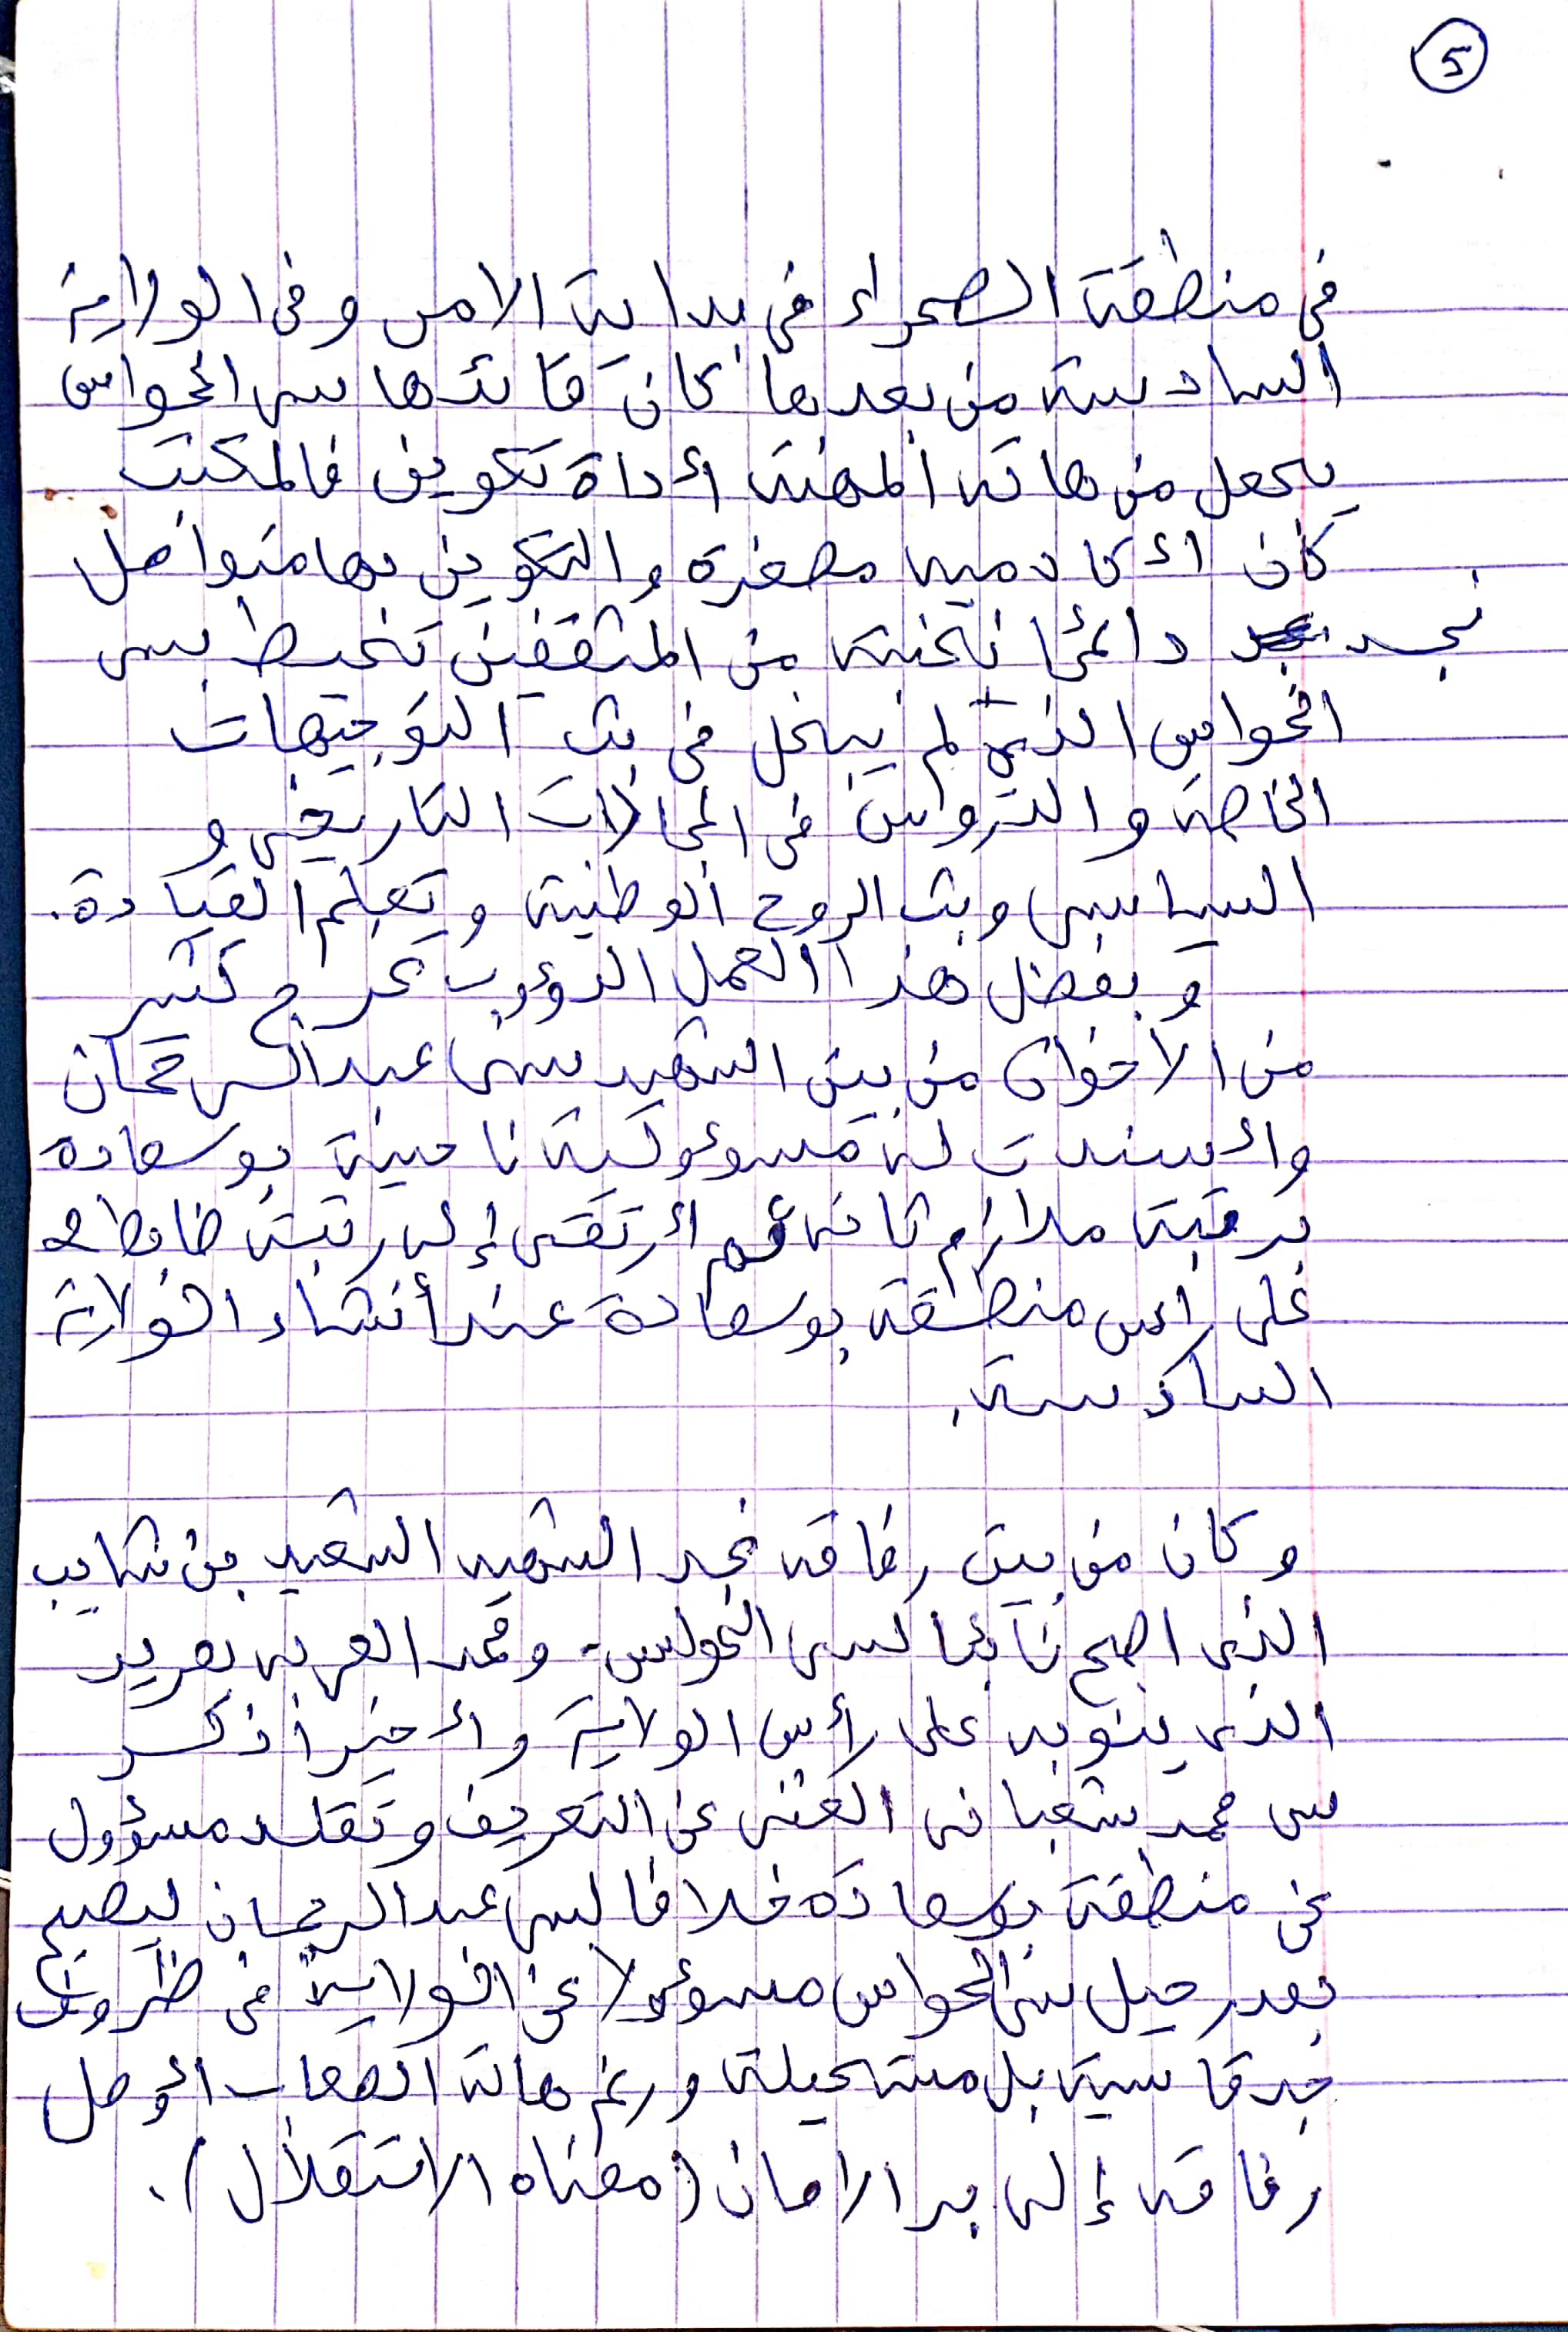 5
في منطقة الصحراء في بداية الامر وفي الولاية
السادسة من بعدها كان قائدها سي الحواس
يجعل من هاته المهنة أداة تكوين فالمكتب
كان أكادمية مصغرة والتكوين بها متواصل
نجد دائما نخبة من المثقفين تحيط بسي
الحواس الذي لم يبخل في بث التوجيهات
الخاصة والدروس في المجالات التاريخي و
السياسي وبث الروح الوطنية وتعلم القيادة.
وبفضل هذا العمل الدؤوب تخرج كثير
من الأخوان من بين الشهيد سي عبد الرحمان
وأسندت له مسؤولية ناحية بوسعادة
برتبة ملازم ثاني ثم أرتقى إلى رتبة ضابط 2
على راس منطقة بوسعادة عند أنشاء الولاية
السادسة.
وكان من بين رفاقه نجد الشهيد الشعيد بن شايب
الذي اصبح نائبا لسي الحواس. ومحمد العربي بعرير
الذي ينوبه على رأس الولاية وأخيرا أذكر
سي محمد شعباني الغني عن التعريف وتقلد مسؤول
عن منطقة بوسعادة خلافا لسي عبد الرحمان ليصبح
بعد رحيل سي الحواس مسؤولا عن الولاية في ظروف
جد قاسية بل مستحيلة ورغم هاته الصعاب أوصل
رفاقه إلى بر الامان (معناه الاستقلال).